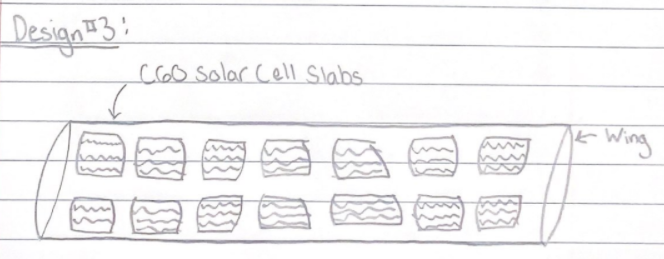 Design #3:
C60 Solar Cell Slabs
← Wing